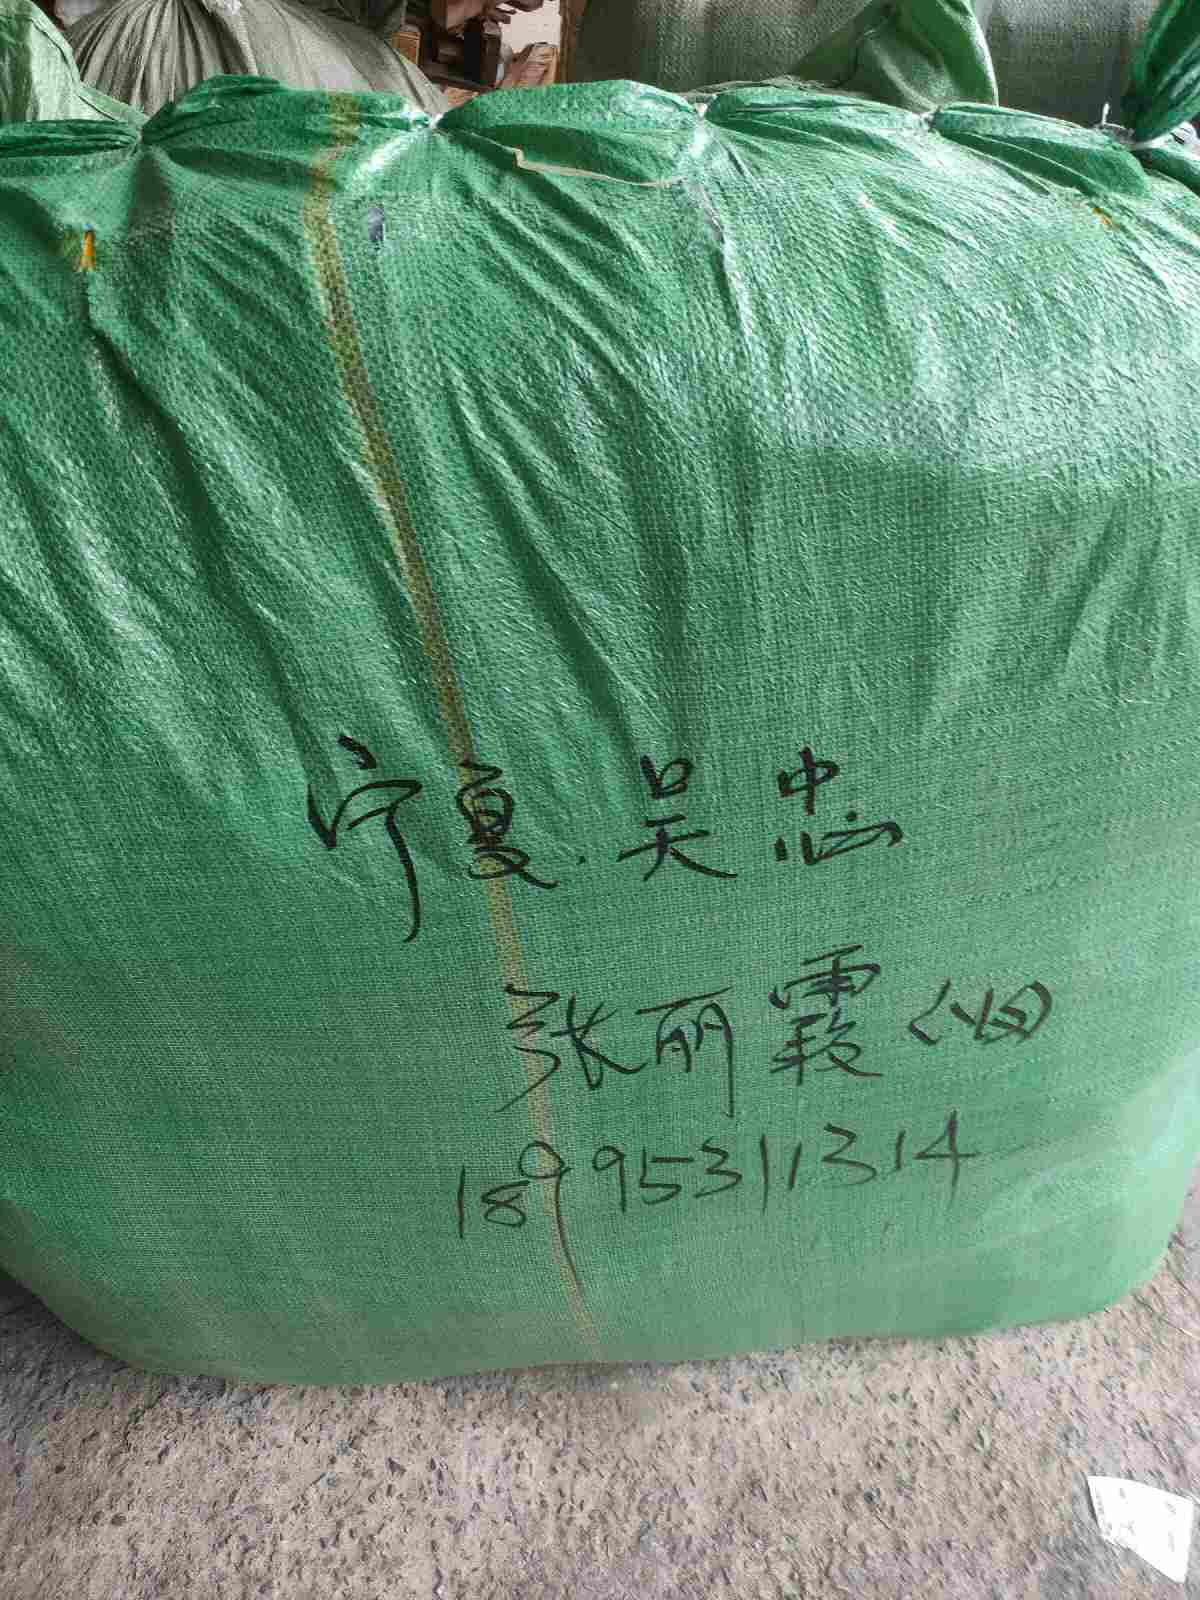 宁夏.吴忠
张丽霞
18995311314